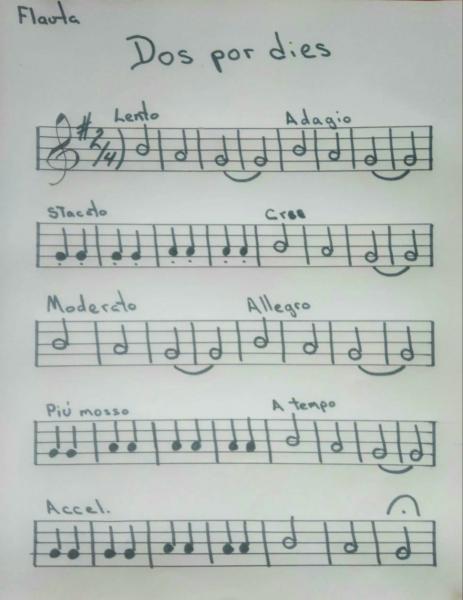 Flauta
Dos por dies
Lento Adagio
2/4
Stacato Cres
Moderato Allegro
Piú mosso A tempo
Accel.